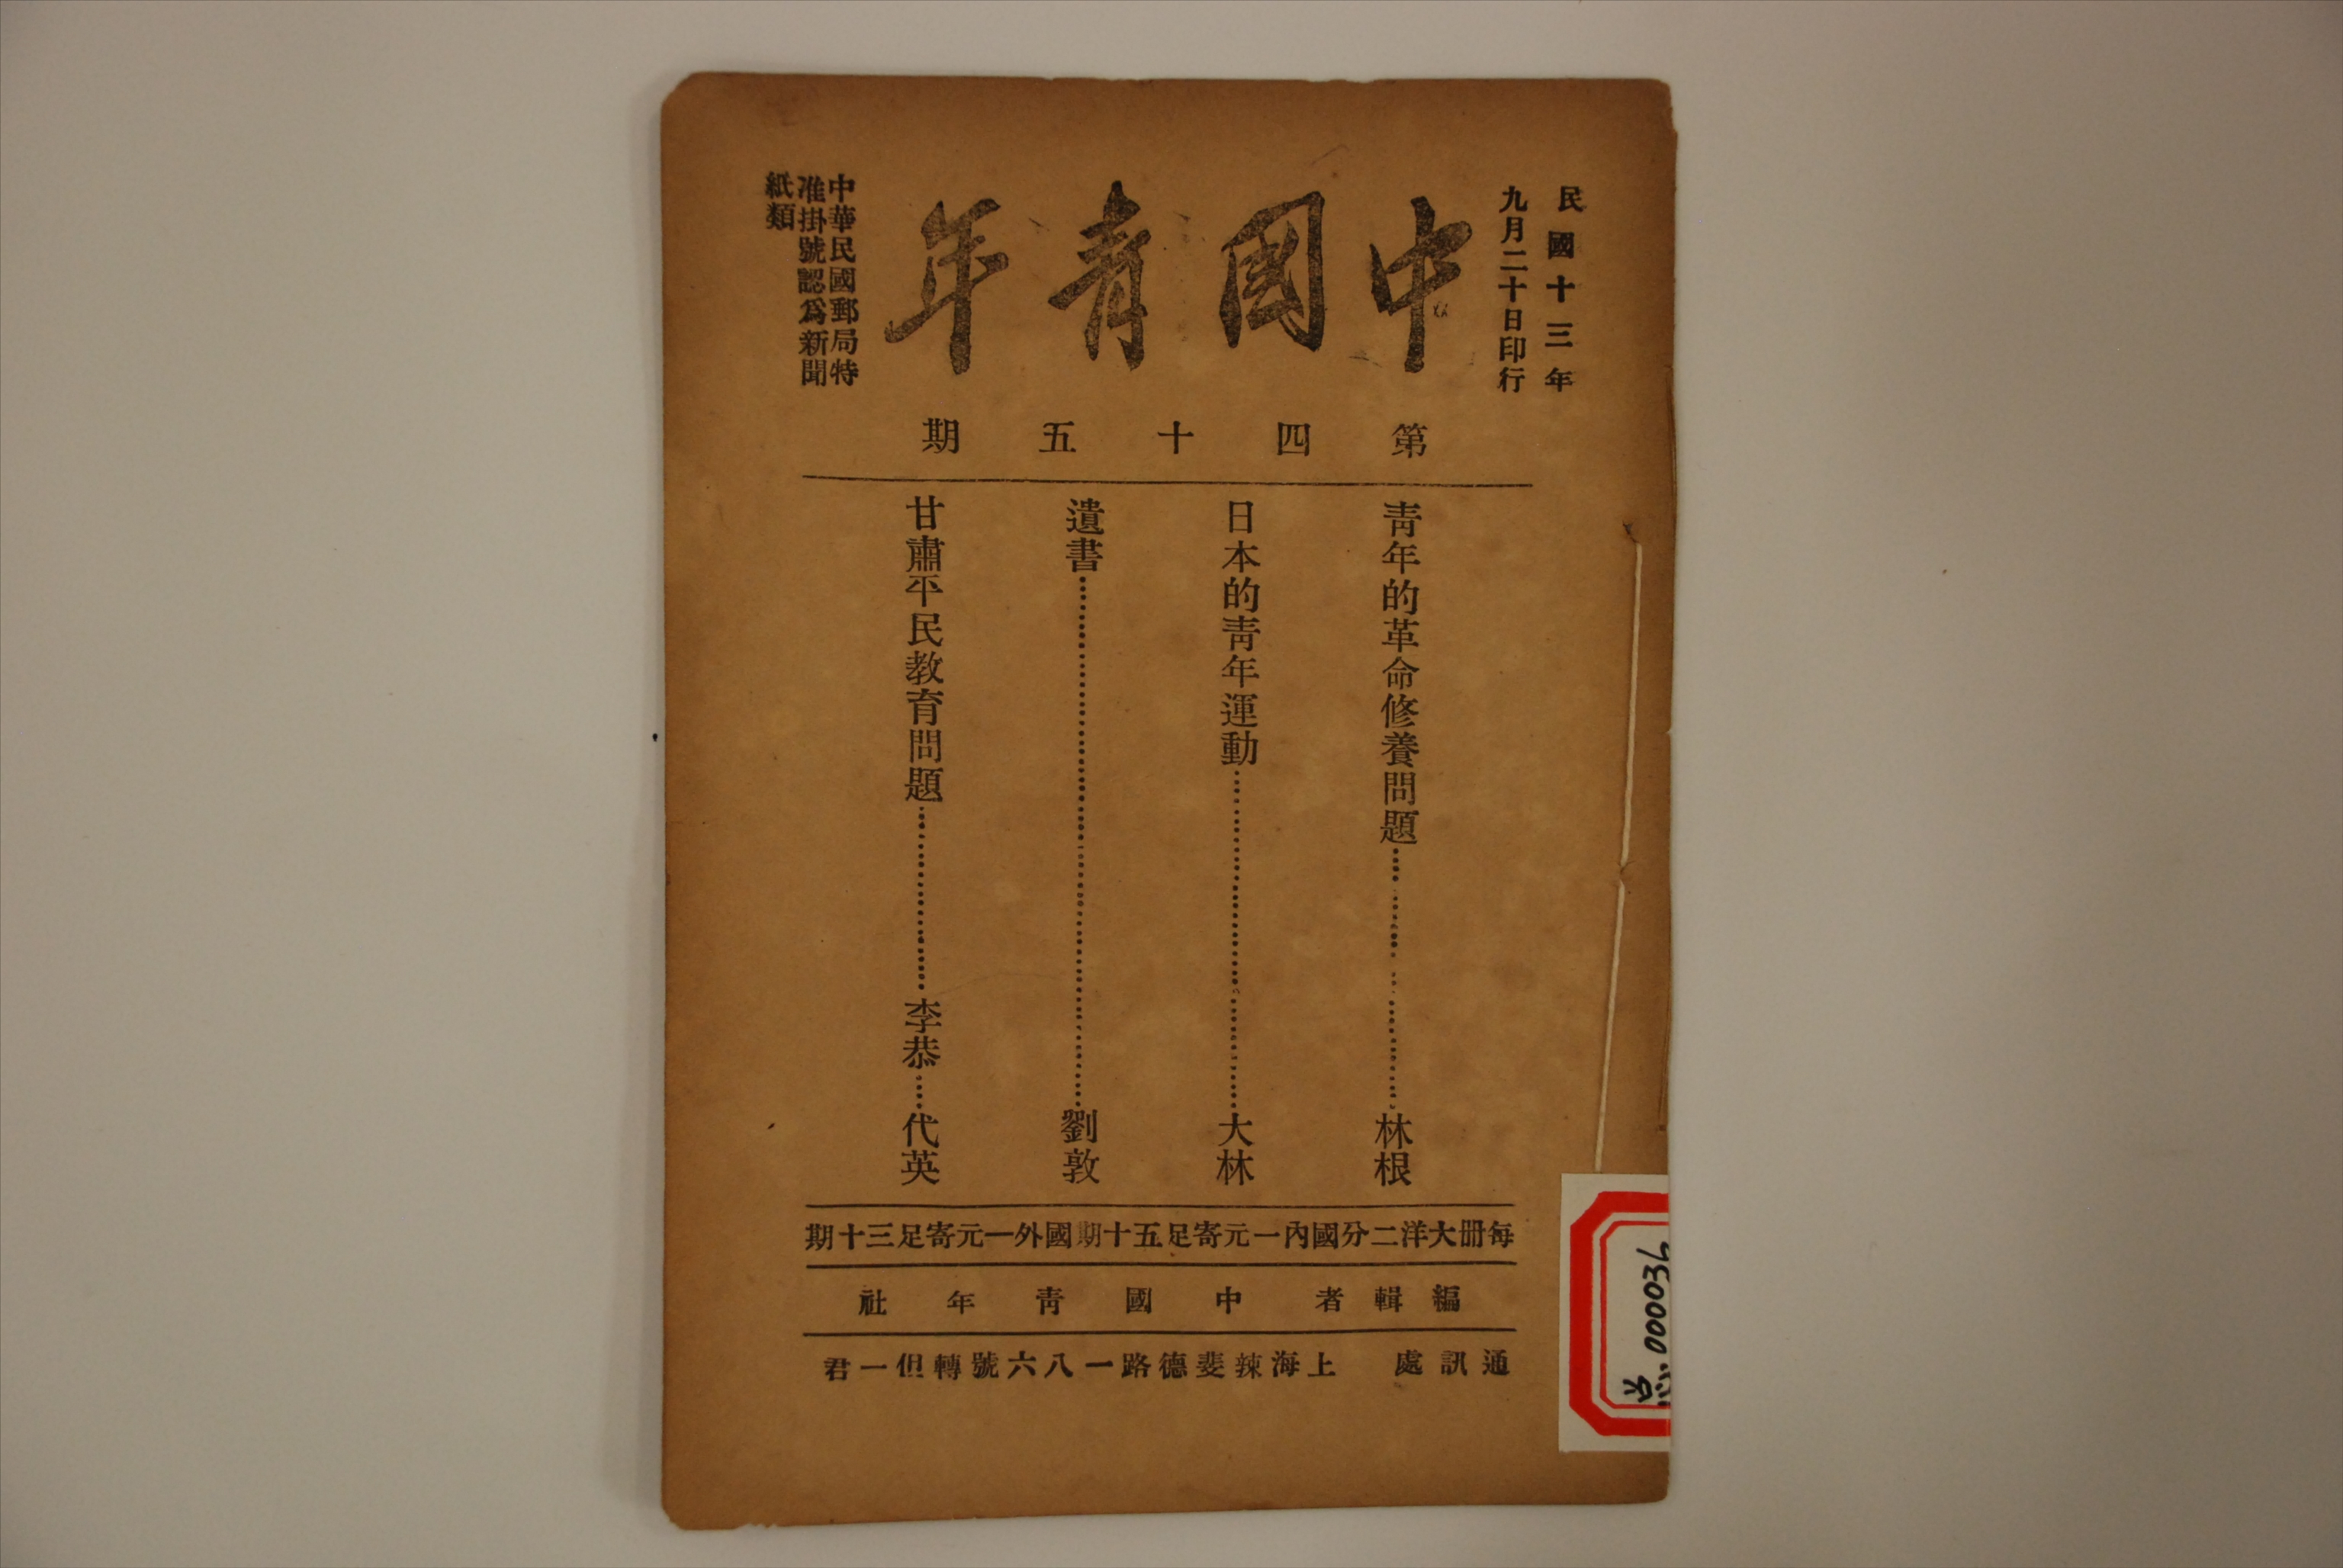 民國十三年
九月二十日印行
中國青年
中華民國郵局特
准掛號認爲新聞
紙類
第四十五期
青年的革命修養問題……林根
日本的青年運動……大林
遺書……劉敦
甘肅平民教育問題……李恭……代英
每冊大洋二分國內一元寄足五十期國外一元寄足三十期
編輯者 中國青年社
通訊處 上海辣斐德路一八六號轉但一君